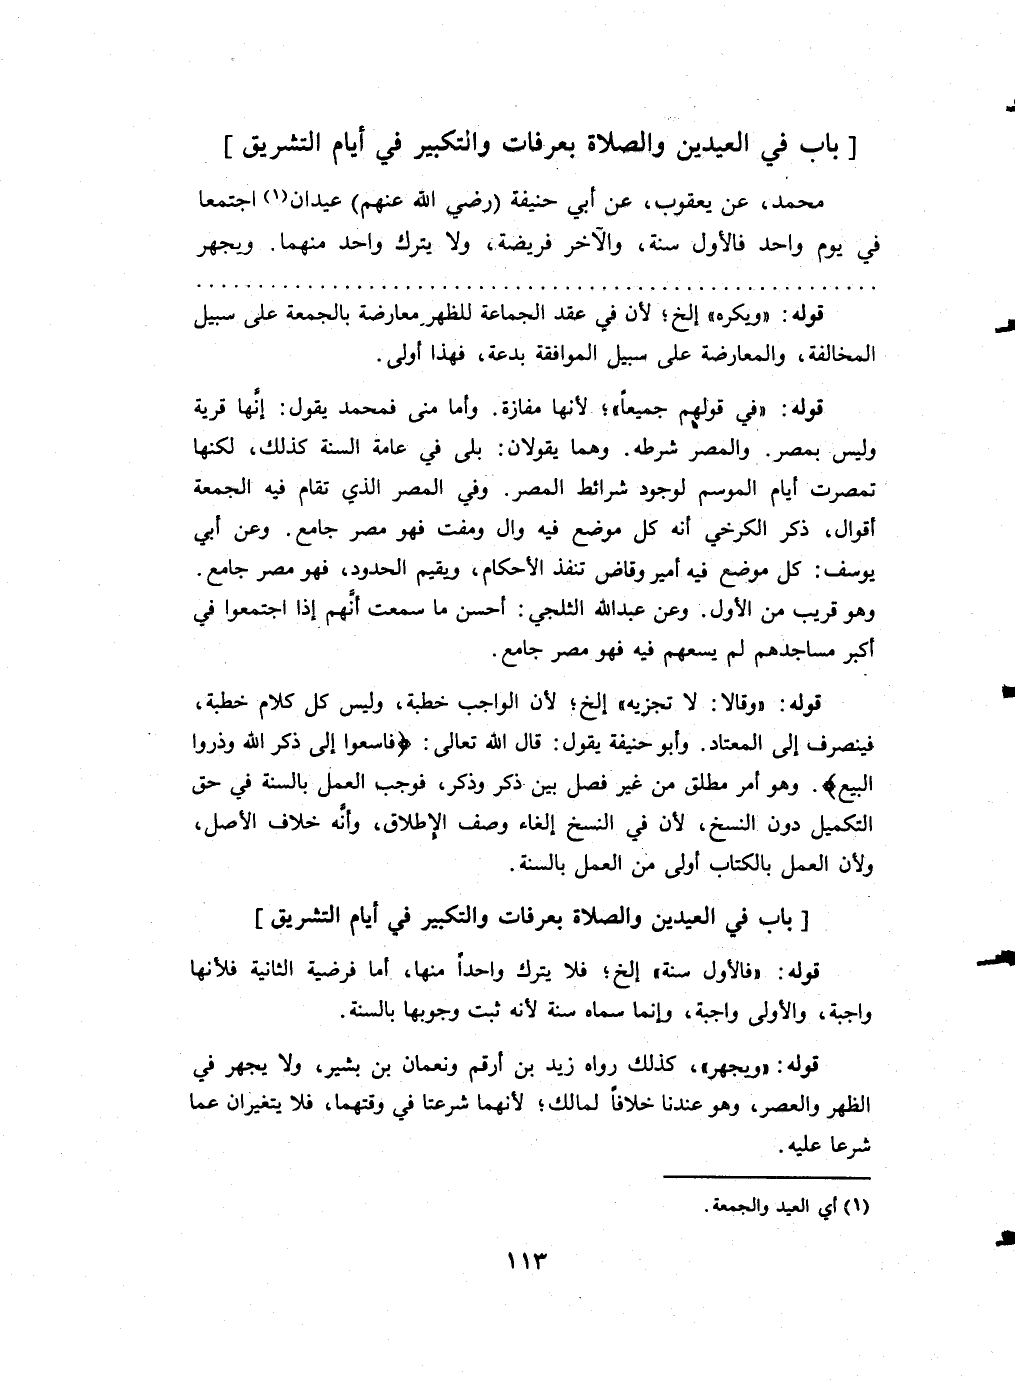 [ باب في العيدين والصلاة بعرفات والتكبير في أيام التشريق ]
محمد، عن يعقوب، عن أبي حنيفة (رضي الله عنهم) عيدان(١) اجتمعا
في يوم واحد فالأول سنة، والآخر فريضة، ولا يترك واحد منهما. ويجهر
قوله: «ويكره» إلخ؛ لأن في عقد الجماعة للظهر معارضة بالجمعة على سبيل
المخالفة، والمعارضة على سبيل الموافقة بدعة، فهذا أولى.
قوله: «في قولهم جميعاً»؛ لأنها مفازة. وأما منى فمحمد يقول: إنَّها قرية
وليس بمصر. والمصر شرطه. وهما يقولان: بلى في عامة السنة كذلك، لكنها
تمصرت أيام الموسم لوجود شرائط المصر. وفي المصر الذي تقام فيه الجمعة
أقوال، ذكر الكرخي أنه كل موضع فيه وال ومفت فهو مصر جامع. وعن أبي
يوسف: كل موضع فيه أمير وقاض تنفذ الأحكام، ويقيم الحدود، فهو مصر جامع.
وهو قريب من الأول. وعن عبدالله الثلجي: أحسن ما سمعت أنَّهم إذا اجتمعوا في
أكبر مساجدهم لم يسعهم فيه فهو مصر جامع.
قوله: «وقالا: لا تجزيه» إلخ؛ لأن الواجب خطبة، وليس كل كلام خطبة،
فينصرف إلى المعتاد. وأبو حنيفة يقول: قال الله تعالى: ﴿فاسعوا إلى ذكر الله وذروا
البيع﴾. وهو أمر مطلق من غير فصل بين ذكر وذكر، فوجب العمل بالسنة في حق
التكميل دون النسخ، لأن في النسخ إلغاء وصف الإطلاق، وأنَّه خلاف الأصل،
ولأن العمل بالكتاب أولى من العمل بالسنة.
[ باب في العيدين والصلاة بعرفات والتكبير في أيام التشريق ]
قوله: «فالأول سنة» إلخ؛ فلا يترك واحداً منها، أما فرضية الثانية فلأنها
واجبة، والأولى واجبة، وإنما سماه سنة لأنه ثبت وجوبها بالسنة.
قوله: «ويجهر»، كذلك رواه زيد بن أرقم ونعمان بن بشير، ولا يجهر في
الظهر والعصر، وهو عندنا خلافاً لمالك؛ لأنهما شرعتا في وقتهما، فلا يتغيران عما
شرعا عليه.
(١) أي العيد والجمعة.
١١٣